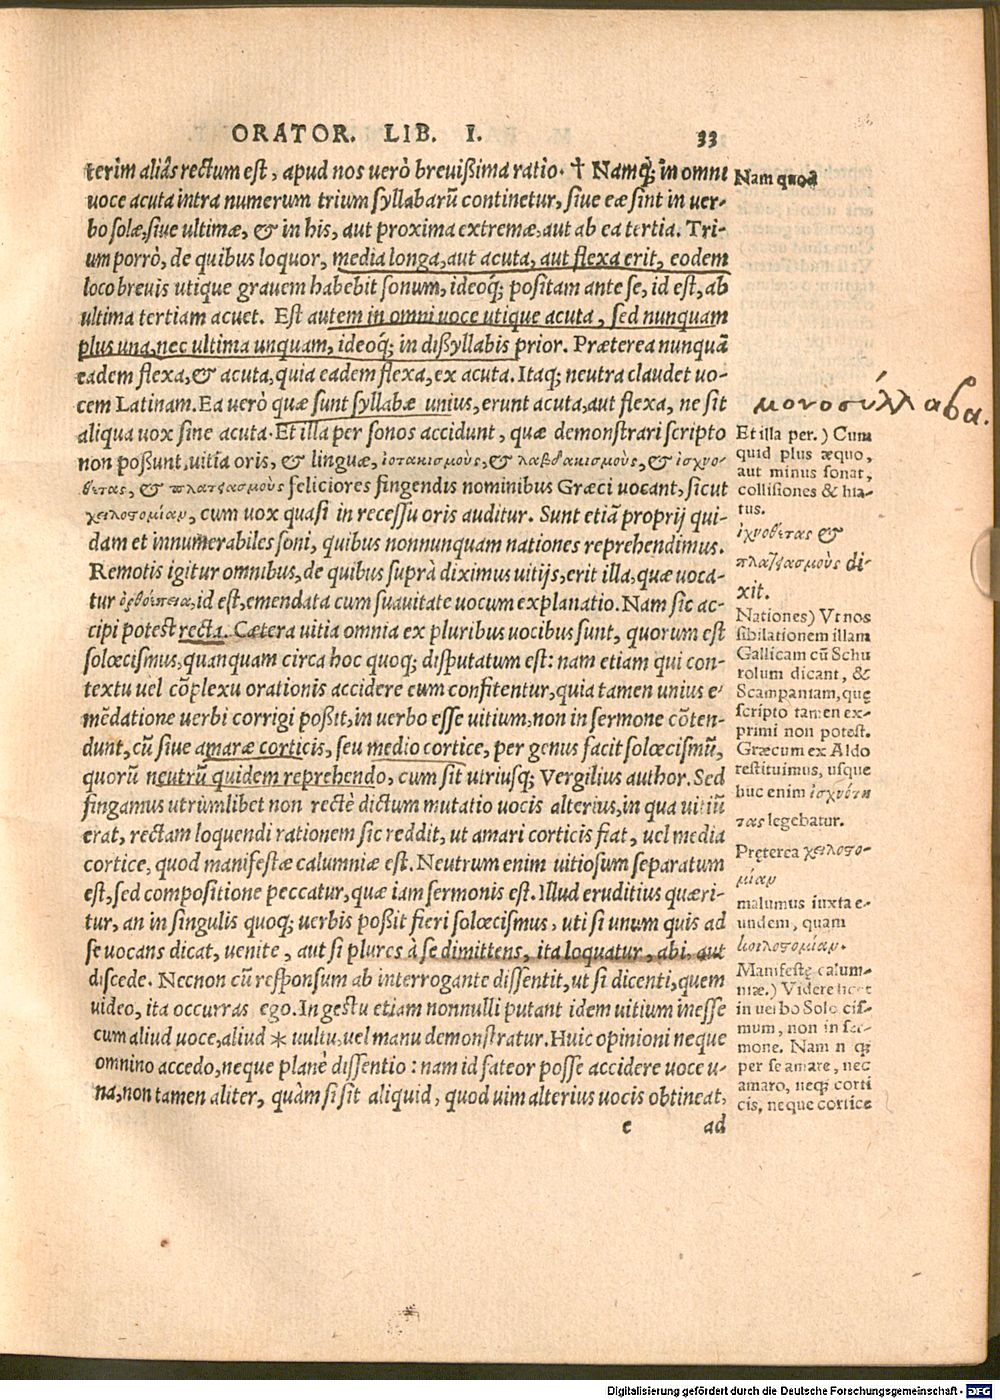 ORATOR. LIB. I. 33
terim aliâs rectum est, apud nos uerò breuißima ratio. † Namq́; in omni
uoce acuta intra numerum trium syllabarũ continetur, siue eæ sint in uer-
bo solæ, siue ultimæ, & in his, aut proxima extremæ, aut ab ea tertia. Tri-
um porrò, de quibus loquor, media longa, aut acuta, aut flexa erit, eodem
loco breuis utique grauem habebit sonum, ideoq́; positam ante se, id est, ab
ultima tertiam acuet. Est autem in omni uoce utique acuta, sed nunquam
plus una, nec ultima unquam, ideoq́; in dißyllabis prior. Præterea nunquã
eadem flexa, & acuta, quia eadem flexa, ex acuta. Itaq; neutra claudet uo-
cem Latinam. Ea uerò quæ sunt syllabæ unius, erunt acuta, aut flexa, ne sit
aliqua uox sine acuta. Et illa per sonos accidunt, quæ demonstrari scripto
non possunt, uitia oris, & linguæ, ἰοτακισμοὺς, & λαβδακισμοὺς, & ἰσχνο-
θετας, & πλατειασμοὺς feliciores fingendis nominibus Græci uocant, sicut
χειλοστομίαν, cum uox quasi in recessu oris auditur. Sunt etiã proprij qui-
dam et innumerabiles soni, quibus nonnunquam nationes reprehendimus.
Remotis igitur omnibus, de quibus suprà diximus uitijs, erit illa, quæ uoca-
tur ὀρθοέπεια, id est, emendata cum suauitate uocum explanatio. Nam sic ac-
cipi potest recta. Cætera uitia omnia ex pluribus uocibus sunt, quorum est
solœcismus, quanquam circa hoc quoq; disputatum est: nam etiam qui con-
textu uel cõplexu orationis accidere eum confitentur, quia tamen unius e-
mẽdatione uerbi corrigi poßit, in uerbo esse uitium, non in sermone cõten-
dunt, cũ siue amaræ corticis, seu medio cortice, per genus facit solœcismũ,
quorũ neutrũ quidem reprehendo, cum sit utriusq; Vergilius author. Sed
fingamus utrumlibet non rectè dictum mutatio uocis alterius, in qua uitiũ
erat, rectam loquendi rationem sic reddit, ut amari corticis fiat, uel media
cortice, quod manifestæ calumniæ est. Neutrum enim uitiosum separatum
est, sed compositione peccatur, quæ iam sermonis est. Illud eruditius quæri-
tur, an in singulis quoq; uerbis poßit fieri solœcismus, uti si unum quis ad
se uocans dicat, uenite, aut si plures à se dimittens, ita loquatur, abi, aut
discede. Necnon cũ responsum ab interrogante dissentit, ut si dicenti, quem
uideo, ita occurras ego. In gestu etiam nonnulli putant idem uitium inesse
cum aliud uoce, aliud * uultu, uel manu demonstratur. Huic opinioni neque
omnino accedo, neque planè dissentio: nam id fateor posse accidere uoce u-
na, non tamen aliter, quàm si sit aliquid, quod uim alterius uocis obtineat,
e ad
Nam quod
μονοσύλλαβα.
Et illa per.) Cum
quid plus æquo,
aut minus sonat,
collisiones & hia-
tus.
ἰχνοθέτας &
πλατειασμοὺς di-
xit.
Nationes) Vt nos
sibilationem illam
Gallicam cũ Schu
rolum dicant, &
Scampaniam, quę
scripto tamen ex-
primi non potest.
Græcum ex Aldo
restituimus, usque
huc enim ἰσχνότη
τας legebatur.
Pręterea χειλοστο-
μίαν
malumus iuxta e-
undem, quam
κοιλοστομίαν.
Manifestę calum-
niæ.) Videre licet
in uerbo Solœcis-
mum, non in ser-
mone. Nam neq;
per se amare, nec
amaro, neq; corti
cis, neque cortice
Digitalisierung gefördert durch die Deutsche Forschungsgemeinschaft - DFG